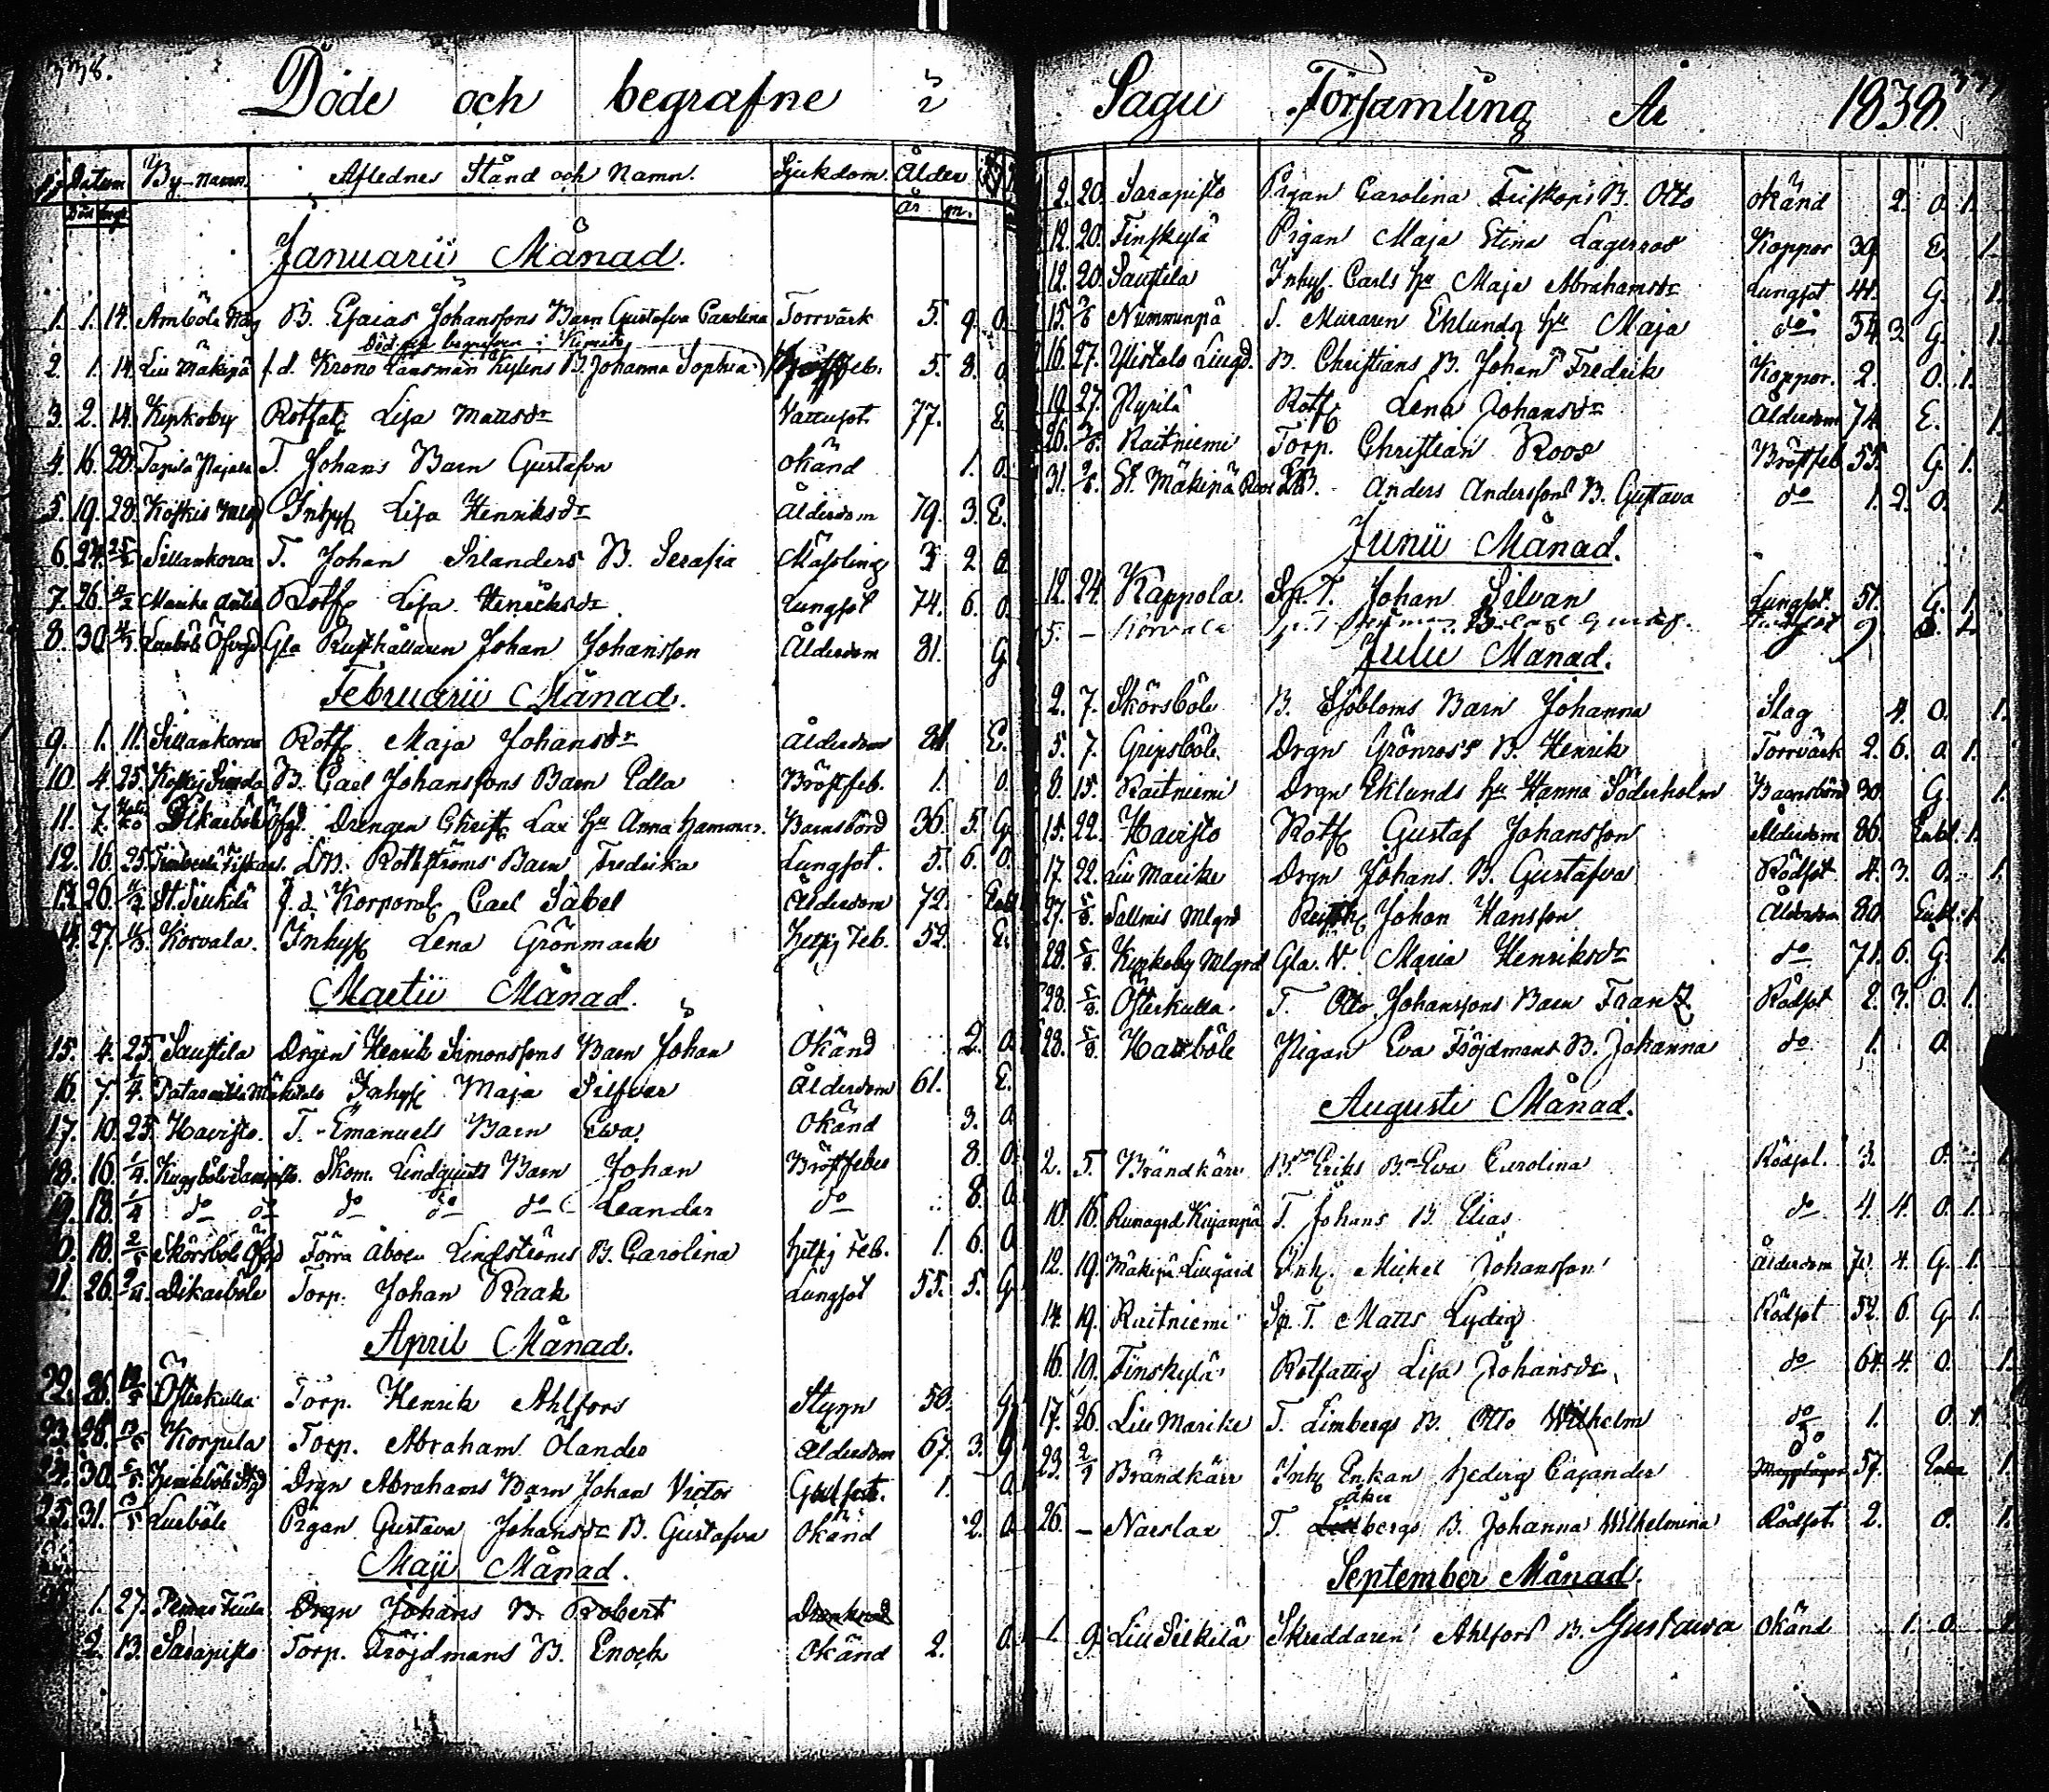 338.
Döde och begrafne i
Datum By-namn. Aflednes Stånd och Namn. Sjukdom. Ålder
Död begr. år m.
Januarii Månad.
1. 1. 14. Ambölä B. Esaias Johanssons Barn Gustafva Carolina Torrvärk 5. 9. O.
Död och begrafven i Kimito
2. 1. 14. Liu Mäkipä f.d. Krono Länsman Kylens B. Johanna Sophia 5. 8. O
3. 2. 14. Kyrkoby Rotfat Lisa Mattsdr Vattusot. 77. E.
4. 16. 28. Tapila Pajala T. Johans Barn Gustafva okänd 1. O.
5. 19. 28. Koskis Inhys Lisa Henriksdr Ålderdom 79. 3. E.
6. 24. Sillankorva T. Johan Silanders B. Serafia Mässling 3 2 O.
7. 26. 4/2 Marike Rotf Lisa Henriksdr Lungsot 74. 6. O.
8. 30. Gla Rusthållaren Johan Johansson Ålderdom 81. G
Februarii Månad.
9. 1. 11. Sillankorva Rotf. Maja Johansdr Ålderdom 81. E.
10. 4. 25. B. Carl Johanssons Barn Edla Bröstfeb. 1. O.
11. 7. Dikarböle Öfvgd. Drengen Christ. Lax hu Anna Hammar. Barnsbörd 36. 5. G.
12. 16. 25. Rothströms Barn Fredrika Lungsot. 5. 6. O.
13. 26. St. Siukilä f.d. Korporal Carl Sabel Ålderdom 72.
14. 27. Korvala. Inhys Lena Grönmark Hetsig Feb. 52. E.
Martii Månad.
15. 4. 25. Saustila Drgen Henrik Simonssons Barn Johan Okänd 2. O.
16. 7. 1/4. Inhys Maja Silfver Ålderdom 61. E.
17. 10. 25. Havisto. T. Emanuels Barn Eva okänd 3. O
18. 16. 1/4 Skom. Lindquists Barn Johan Bröstfeber 8. O.
19. 18. 1/4 do do do do do Leander do 8. O.
20. 18. Skörsböle Öfvgd Förra åboen Lindströms B. Carolina hetsig Feb. 1. 6. O
21. 26. 2/4. Dikarböle Torp. Johan Raak Lungsot 55. 5. G
April Månad.
22. 26. Österkulla Torp. Henrik Ahlfors Styng 58. G
23. 28. Korpela Torp. Abraham Ölander Ålderdom 67. 3. G
24. 30. Drgn Abrahams Barn Johan Victor 1. O.
25. 31. Luxböle Pigan Gustava Johansdr B. Gustafva Okänd 2. O.
Maji Månad.
1. 27. Drgn Johans B. Robert Drunknad
2. 13. Sarapisto Torp. Fröjdmans B. Enoch okänd 2. O.
Sagu Församling År 1838.
2. 20. Sarapisto Pigan Carolina B. Otto okänd 2. O. 1.
12. 20. Finskylä Pigan Maja Stina Lagerroos Koppor 39. E. 1.
12. 20. Saustila Inhys. Carls hu Maja Abrahamsdr Lungsot 41. G. 1.
15. Nummenpä S. Muraren Eklunds hu Maja do 54. 3. G. 1.
16. 27. B. Christians B. Johan Fredrik Koppor. 2. O. 1.
19. 27. Pypilä Rotf Lena Johansdr Ålderdom 74. E. 1.
26. Raitniemi Torp. Christian Roos Bröstfeb. 55. G. 1.
31. St. Mäkipä Anders Anderssons B. Gustava do 1. 2. O. 1.
Junii Månad.
12. 24. Kappola. Sp. T. Johan Silvan Lungsot. 51. G. 1.
5. – Korvala 9.
Julii Månad.
2. 7. Skörsböle B. Sjöbloms Barn Johanna Slag 4. O. 1.
5. 7. Gripsböle. Drgn Grönroos's B. Henrik Torrvärk 2. 6. O. 1.
8. 15. Raitniemi Drgn Eklunds hu Hanna Söderholm Barnsbörd 30. G. 1.
15. 22. Havisto Rotf Gustaf Johansson Ålderdom 86. Enkl. 1.
17. 22. Liu Marike Drgn Johans. B. Gustafva Rödsot 4. 3. O. 1.
27. 5/8. Sallmis Mlgrd Rusth. Johan Hansson Ålderdom 80. Enkl. 1.
28. 5/8. Kyrkoby Mlgrd Gla. V. Maria Henriksdr do 71. 6. G. 1.
28. 5/8. Österkulla. T. Otto Johanssons Barn Frantz Rödsot 2. 3. O. 1.
28. 5/8. Haxböle Pigan Eva Fröjdmans B. Johanna do 1. O.
Augusti Månad.
2. 5. Brändkärr Eriks Eva Carolina Rödsot. 3. O. 1.
10. 16. T. Johans B. Elias do 4. 4. O. 1.
12. 19. Mäkipä Liugård Inh. Michel Johansson Ålderdom 71. 4. G. 1.
14. 19. Raitniemi Sp. T. Matts Lydig Rödsot 52. 6. G. 1.
16. 19. Finskylä Rotfattig Lisa Johansdr. do 64. 4. O. 1.
17. 26. Liu Marike T. Limbergs B. Otto Wilhelm do 1. O. 1.
23. 2/9 Brändkärr Inh Enkan Hedvig Cajander do 57. Enka 1.
26. – Naeslax T. Åkerbergs B. Johanna Wilhelmina Rödsot 2. O. 1.
September Månad.
1. 9. Skräddaren Ahlfors B. Gustava okänd 1. O. 1.